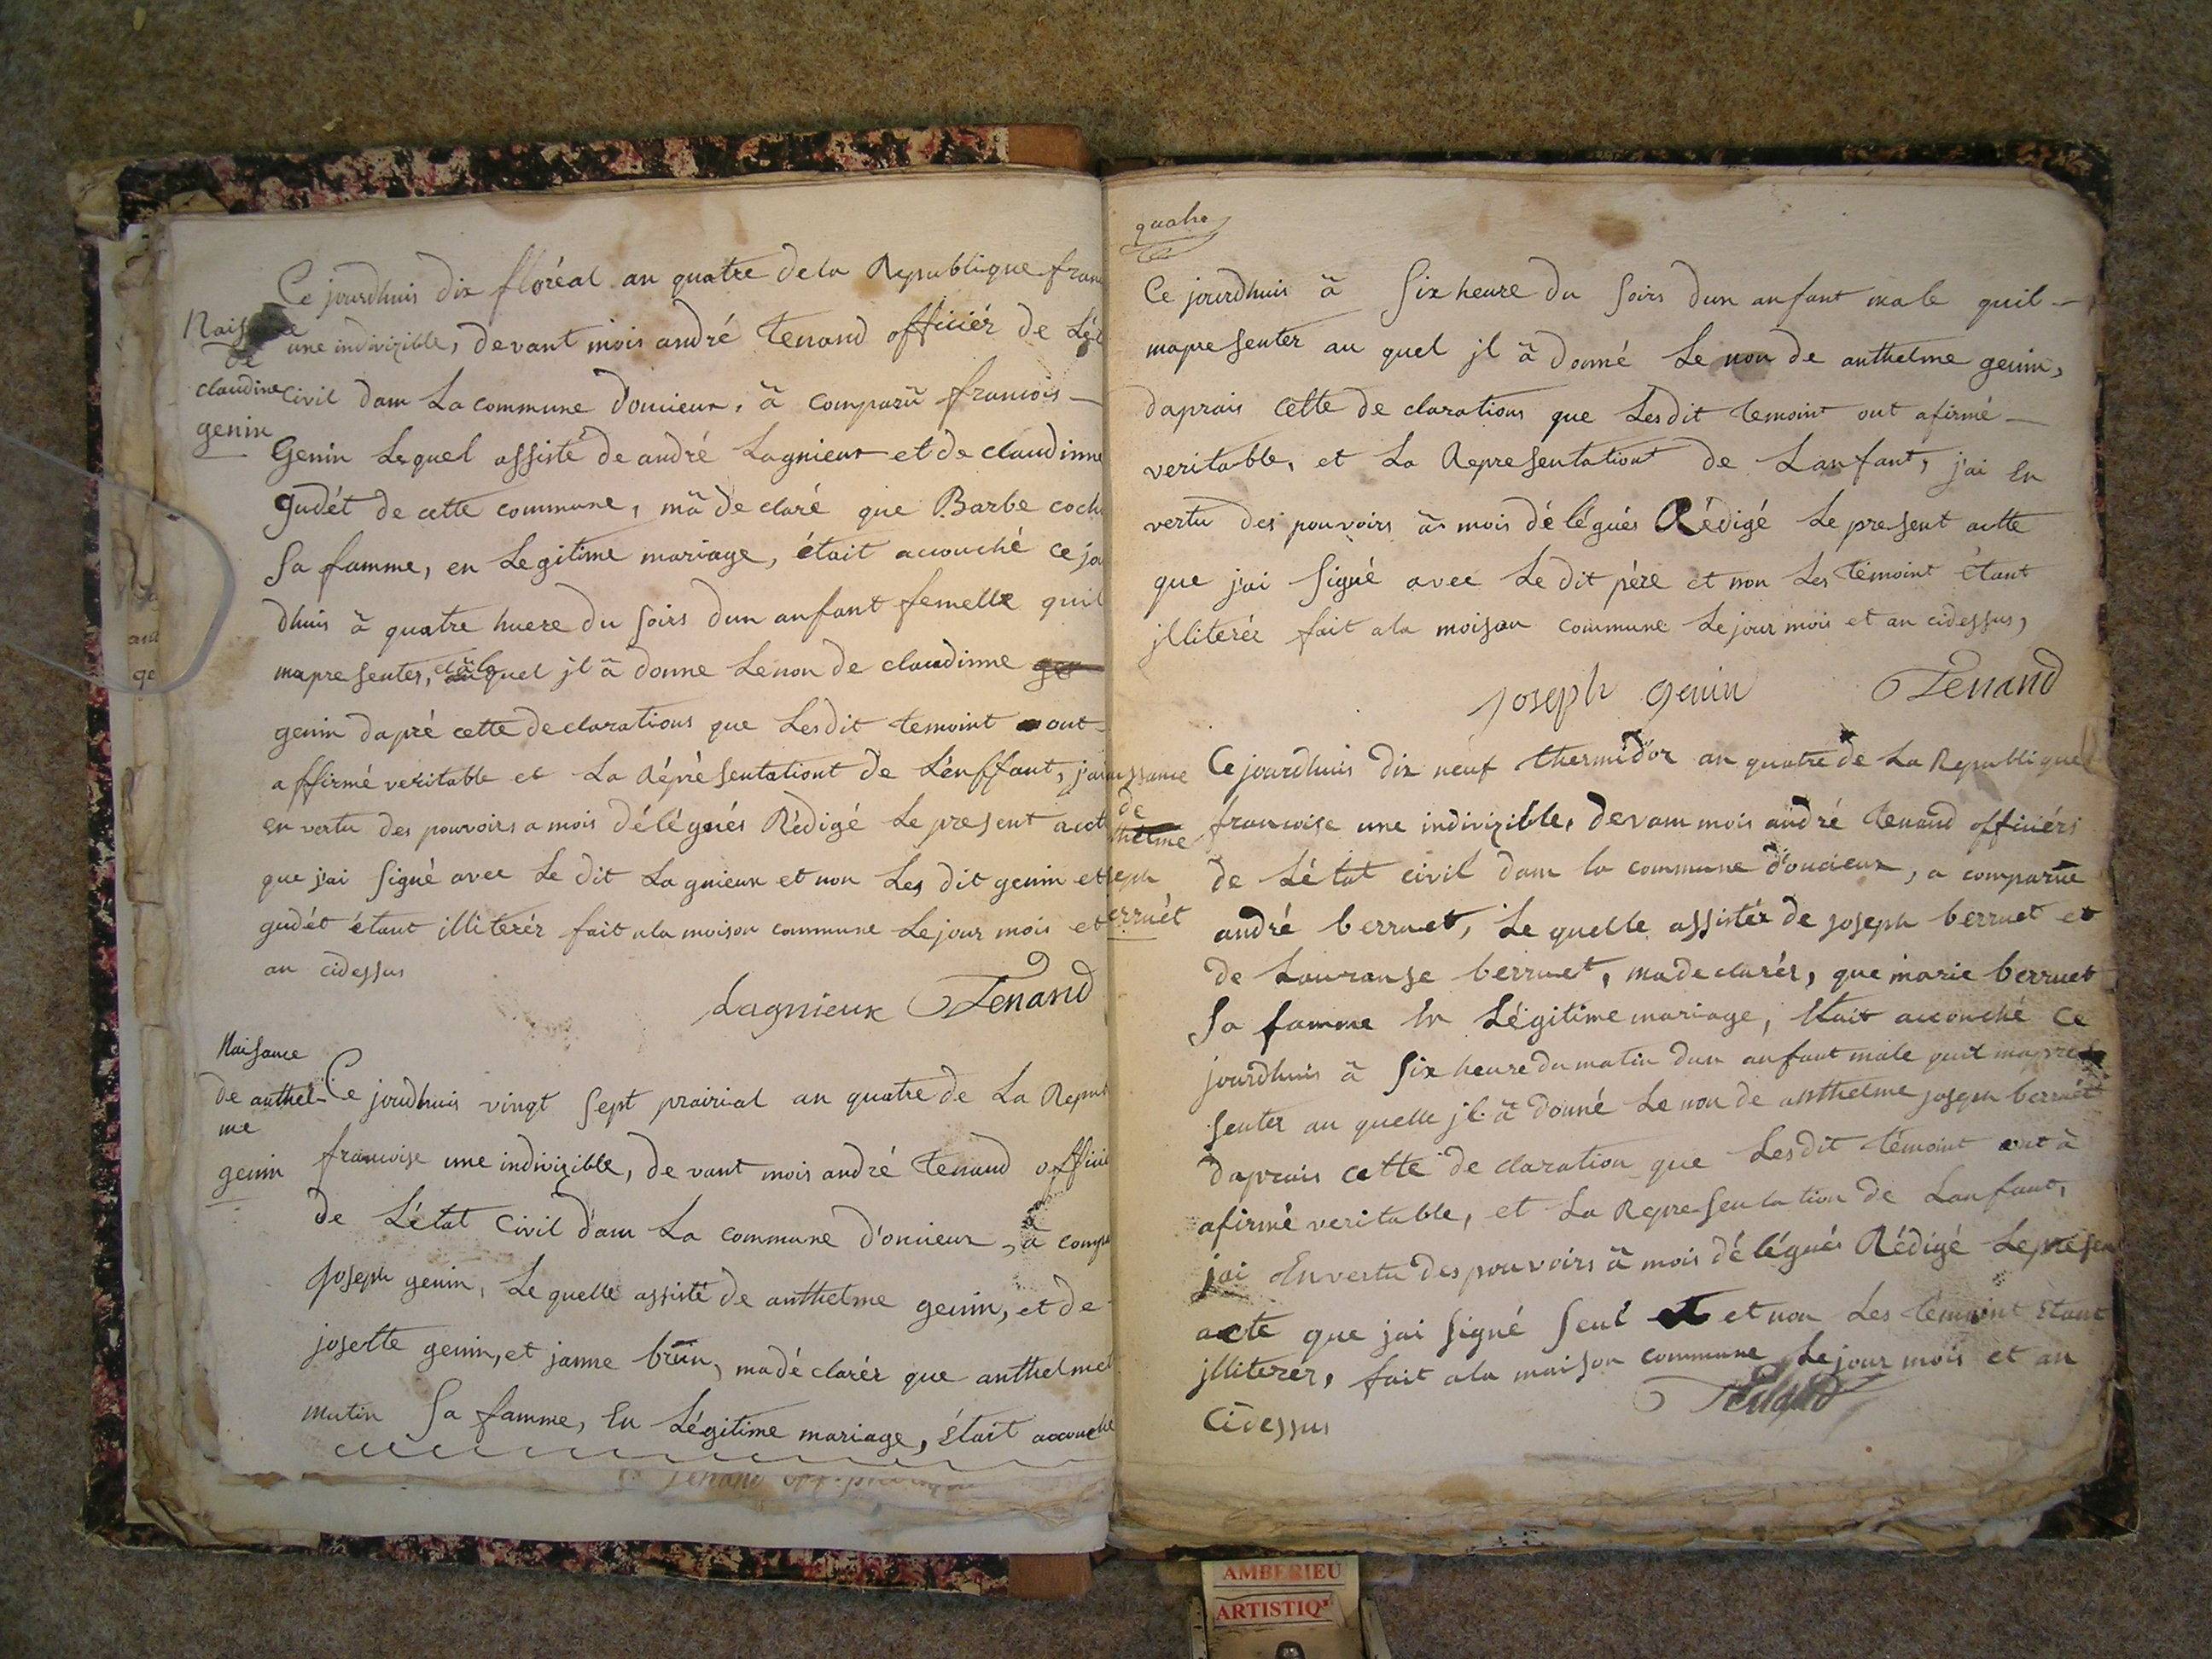 Ce jourdhuis dix floréal an quatre dela Republique fran
Nais
de
claudine
genin
une indivizible, devant mois andré tenand officiér de Lét
civil dam La commune doncieux, à comparû francois
Genin Lequel assisté de andré Lagnieux et de claudinne
gudét de cette commune, mâ declaré que Barbe coch
Sa famme, en Legitime mariage, était accouché ce jo
dhuis à quatre huere du soirs dun anfant femelle quil
mapresenter, quel jl â donne Le non de claudinne ge
genin dapré cette declarations que Lesdit temoint ont
affirmé veritable et La Réprésentationt de Lénffant, j'ai
en vertu des pouvoirs a mois délégués Rédigé Le present act
que j'ai signé avec Le dit Lagnieux et non Les dit genin et
gudét étant illiterér fait ala moison commune Le jour mois et
an cidessus
Lagnieux Tenand
Naisance
de anthel-
me
genin
Ce jourdhuis vingt sept prairial an quatre de La Repub
francoise une indivizible, devant mois andré tenand offici
de Létat Civil dam La commune d'oncieux, à comp
Joseph genin, Le quelle assisté de anthelme genin, et de
josette genin, et janne brun, madéclarér que anthelmet
mutin Sa famme, En Légitime mariage, était accouche
Tenand off. public
quatre
Ce jourdhuis à Six heure du soirs dun anfant male quil
mapresenter au quel jl â donné Le non de anthelme genin,
daprais cette declarations que Lesdit temoint ont afirmé
veritable, et La Representationt de Lanfant, j'ai En
vertu des pouvoirs â mois délégués Rédigé Le present actte
que j'ai signé avec Le dit pére et non Les témoint étant
jlliterér fait ala moison commune Le jour mois et an cidessus,
joseph genin Tenand
ssance
de
thelme
seph
erruét
Ce jourdhuis dix neuf thermidor an quatre de La Republique
francoise une indivizible, devam mois andré tenand officiérs
de Létat civil dam la commune d'oncieux, a comparue
andré berruet, Le quelle assistér de joseph berruet et
de Lauranse berruet, madeclarér, que marie berruet
Sa famme En Légitime mariage, Etait accouché ce
jourdhuis à Six heure du matin dun anfant male quil mapre
senter au quelle jl â donné Le non de anthelme joseph berruét
daprais cette declaration que Lesdit témoint ont à
afirmé veritable, et La Representation de Lanfant,
jai En vertu des pouvoirs â mois délégués Rédigé Le presen
acte que jai signé seul et non Les temoint Etant
jlliterér, fait ala maison commune Le jour mois et an
Cidessus
Tenand
AMBERIEU
ARTISTIQ